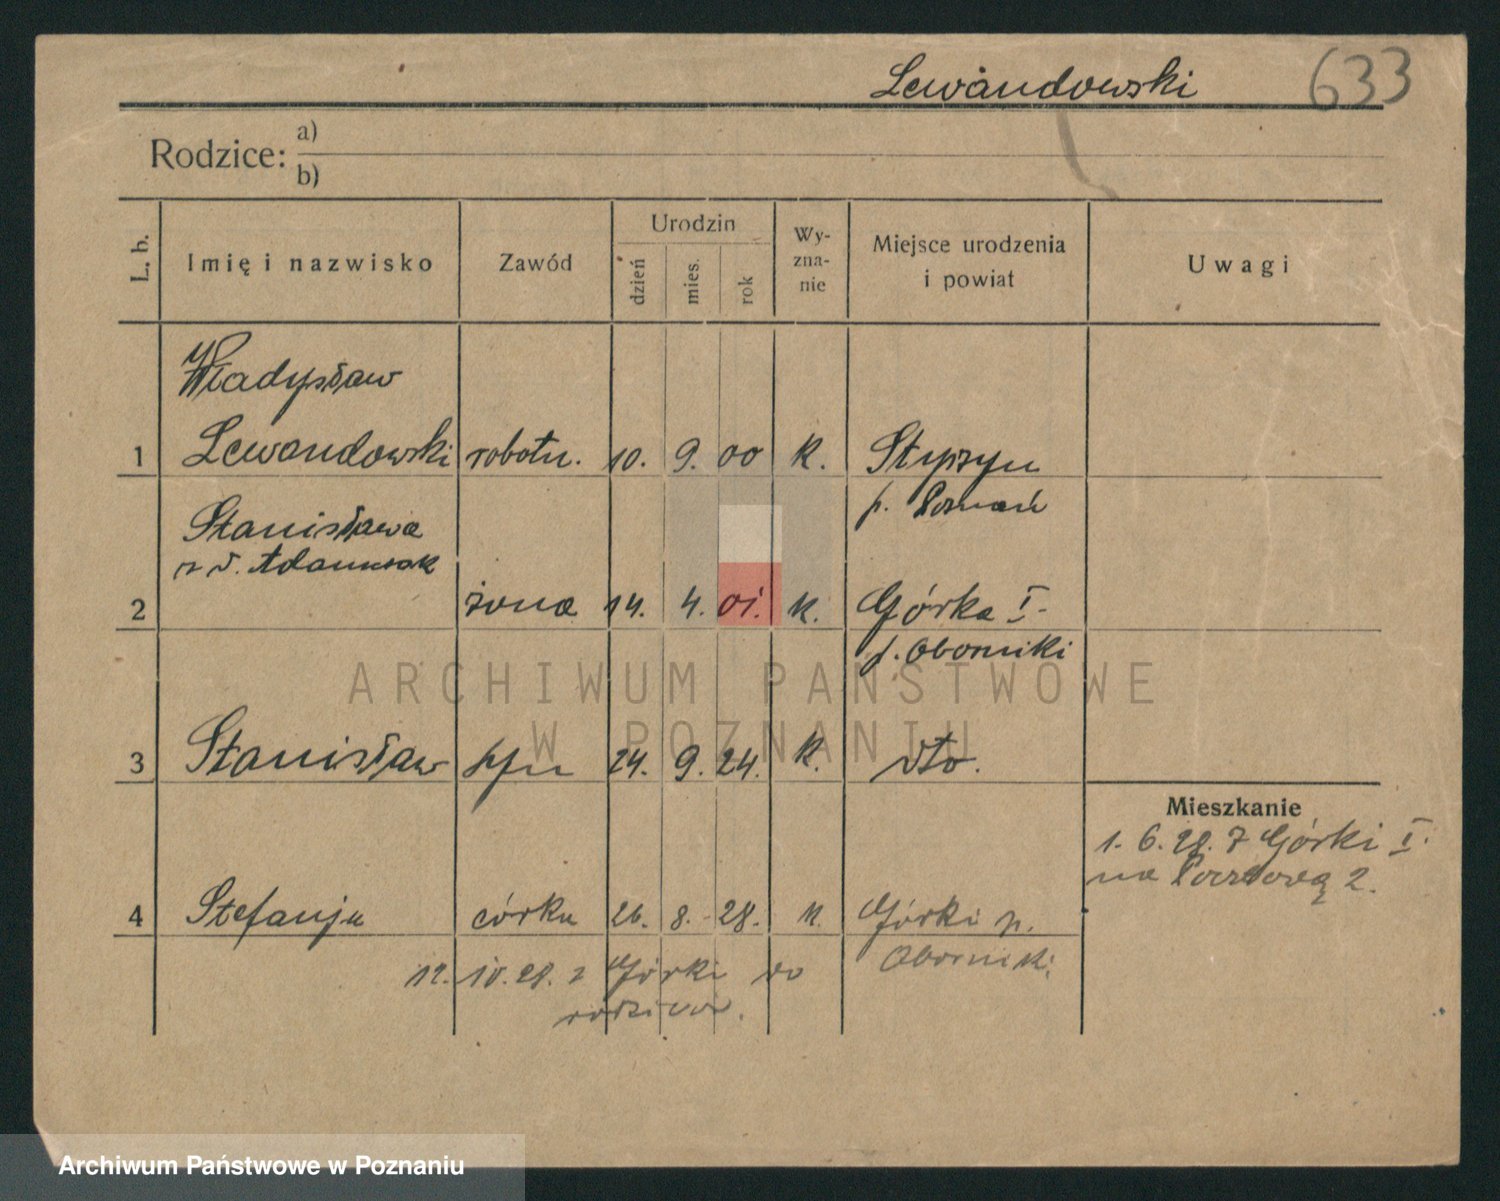 Lewandowski 633
Rodzice: a)
b)
L. b. Imię i nazwisko Zawód Urodzin dzień mies. rok Wy-zna-nie Miejsce urodzenia i powiat Uwagi
Władysław
1 Lewandowski robotn. 10. 9. 00 k.
p. Poznań
Stanisława
z d. Adamczak
2 żona 14. 4. 01. k. Górka I.
p. Oborniki
ARCHIWUM PAŃSTWOWE
W POZNANIU
3 Stanisław syn 24. 9. 24. k. dto.
Mieszkanie
1. 6. 28. z Górki I.
na Pocztową 2.
4 Stefanja córka 26. 8. 28. k. Górki p.
Oborniki
12. 10. 28. z Górki do
rodziców.
Archiwum Państwowe w Poznaniu